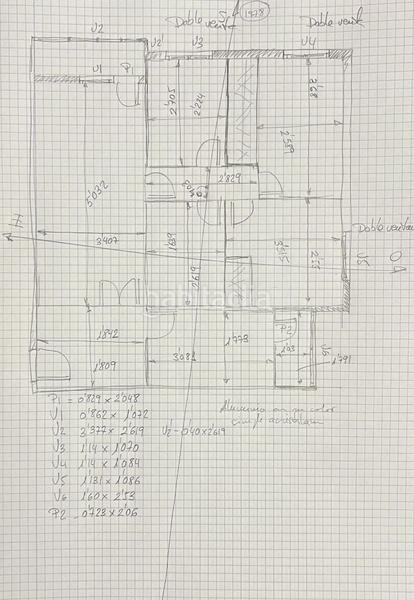 Doble vent
S
1978
Doble vent
V2
V2'
V3
V4
V1
P1
2'705
2'224
2'68
2'589
5'032
2'829
H
3'407
1'639
2'619
3'015
2'55
Doble ventana
V5
O
habitaclia
1'842
1'809
3'081
1'773
P2
1'03
V6
1'791
P1 - 0'829 x 2'048
V1 0'862 x 1'072
V2 3'377 x 2'619 V2 - 0'40 x 2'619
V3 1'14 x 1'070
V4 1'14 x 1'084
V5 1'131 x 1'086
V6 1'60 x 2'53
P2 - 0'723 x 2'06
Aluminio en su color
simple